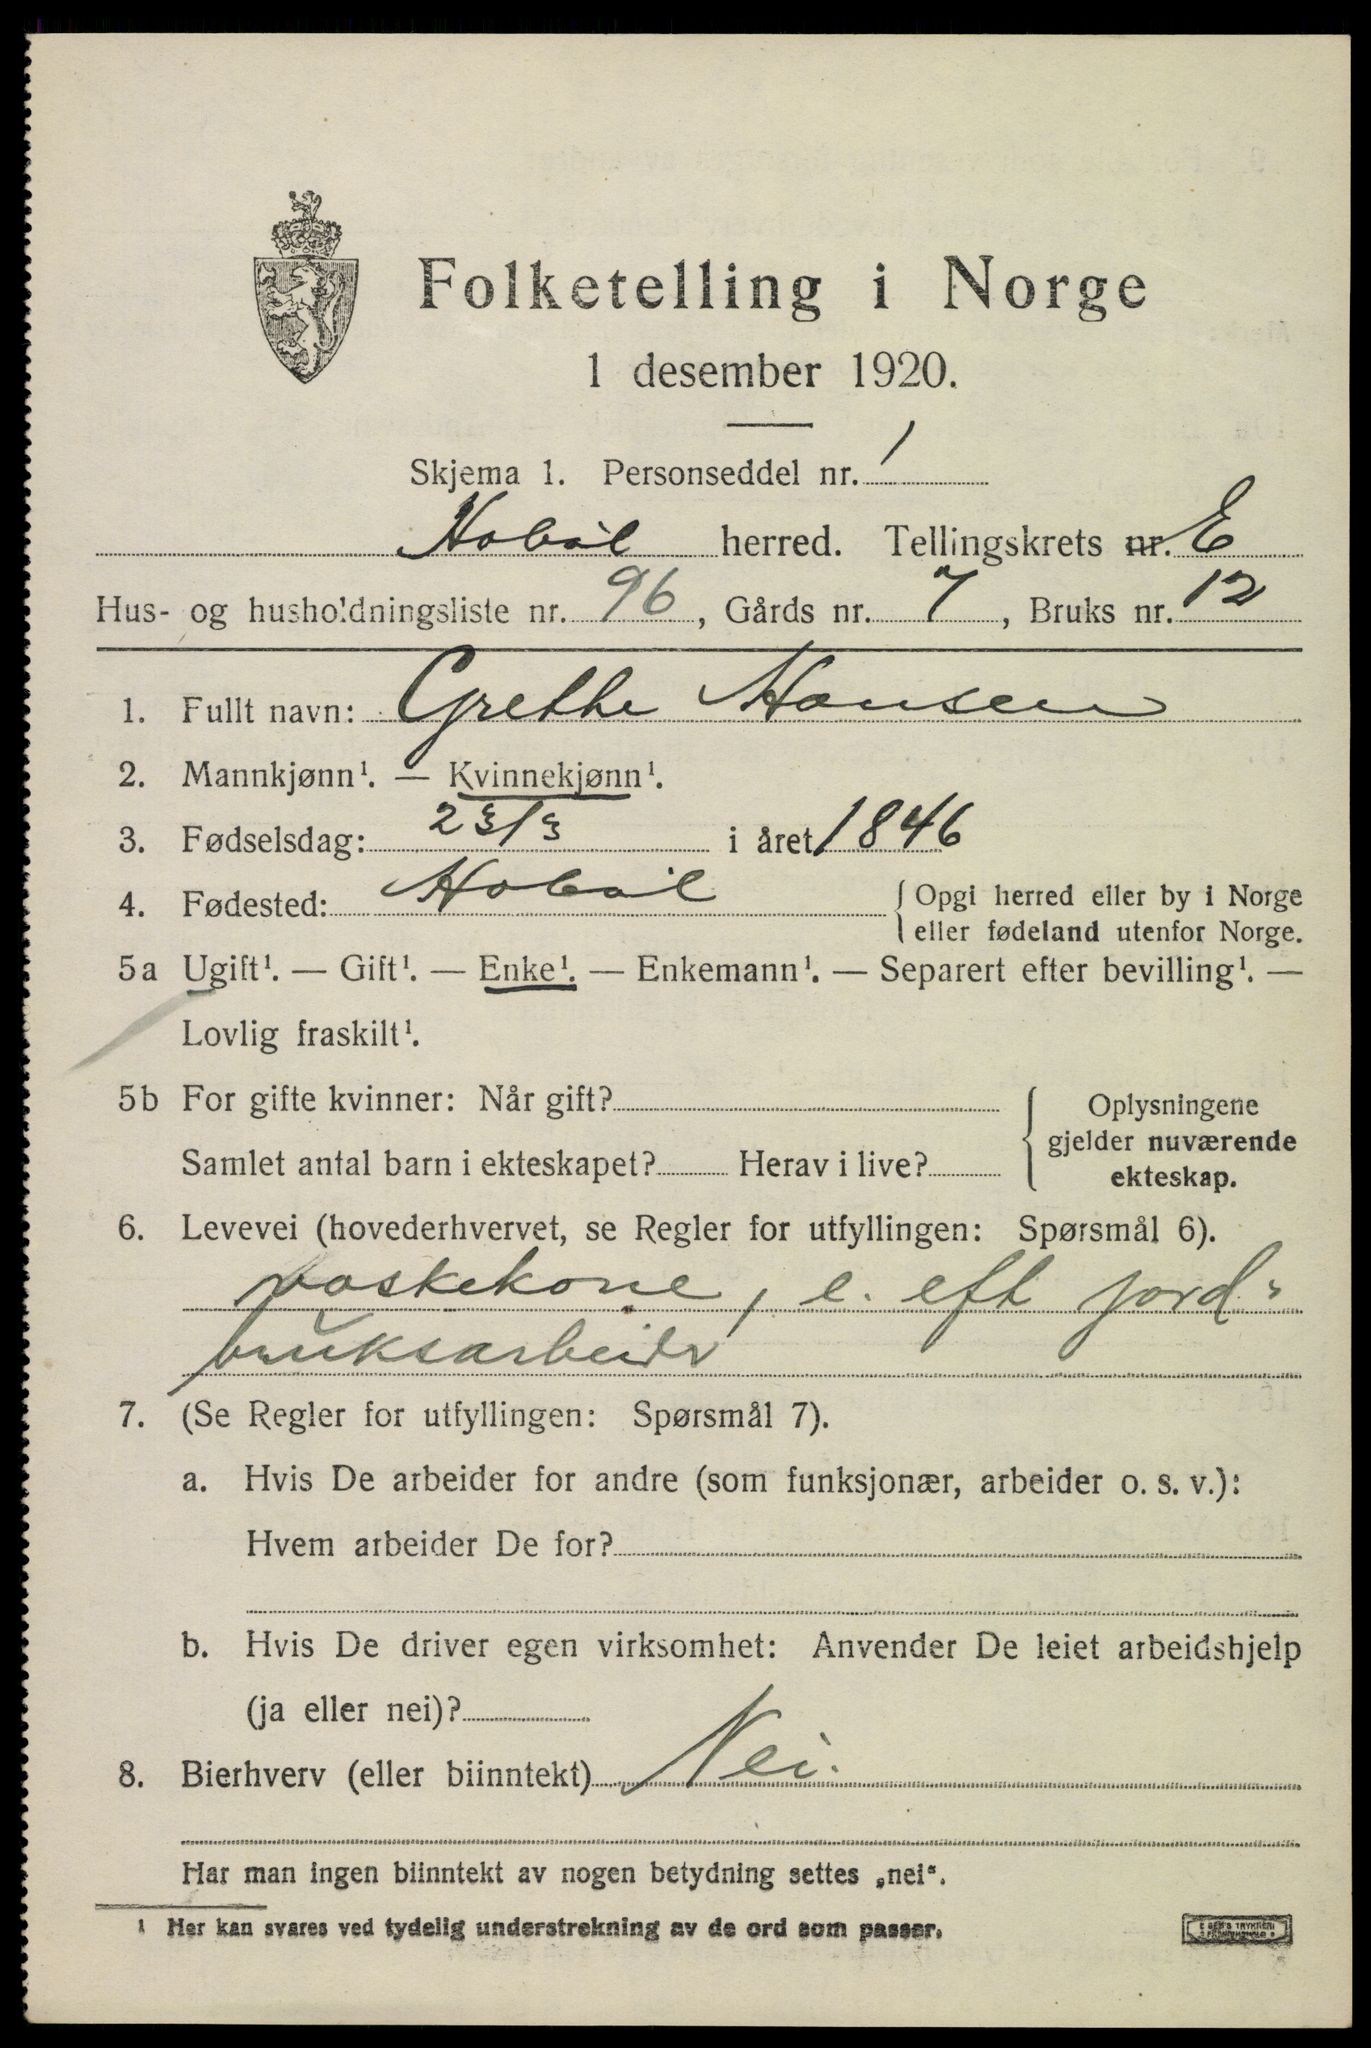 Folketelling i Norge
1 desember 1920.
Skjema 1. Personseddel nr. 1
Hobøl herred. Tellingskrets nr. E
Hus- og husholdningsliste nr. 96, Gårds nr. 7, Bruks nr. 12
1. Fullt navn: Grethe Hansen
2. Mannkjønn¹. — Kvinnekjønn¹.
3. Fødselsdag: 23/3 i året 1846
4. Fødested: Hobøl { Opgi herred eller by i Norge
eller fødeland utenfor Norge.
5a Ugift¹. — Gift¹. — Enke¹. — Enkemann¹. — Separert efter bevilling¹. —
Lovlig fraskilt¹.
5b For gifte kvinner: Når gift?
Samlet antal barn i ekteskapet? Herav i live?
{ Oplysningene
gjelder nuværende
ekteskap.
6. Levevei (hovederhvervet, se Regler for utfyllingen: Spørsmål 6).
vaskekone, e. eft jord-
bruksarbeider
7. (Se Regler for utfyllingen: Spørsmål 7).
a. Hvis De arbeider for andre (som funksjonær, arbeider o. s. v.):
Hvem arbeider De for?
b. Hvis De driver egen virksomhet: Anvender De leiet arbeidshjelp
(ja eller nei)?
8. Bierhverv (eller biinntekt) Nei.
Har man ingen biinntekt av nogen betydning settes „nei“.
¹ Her kan svares ved tydelig understrekning av de ord som passer.